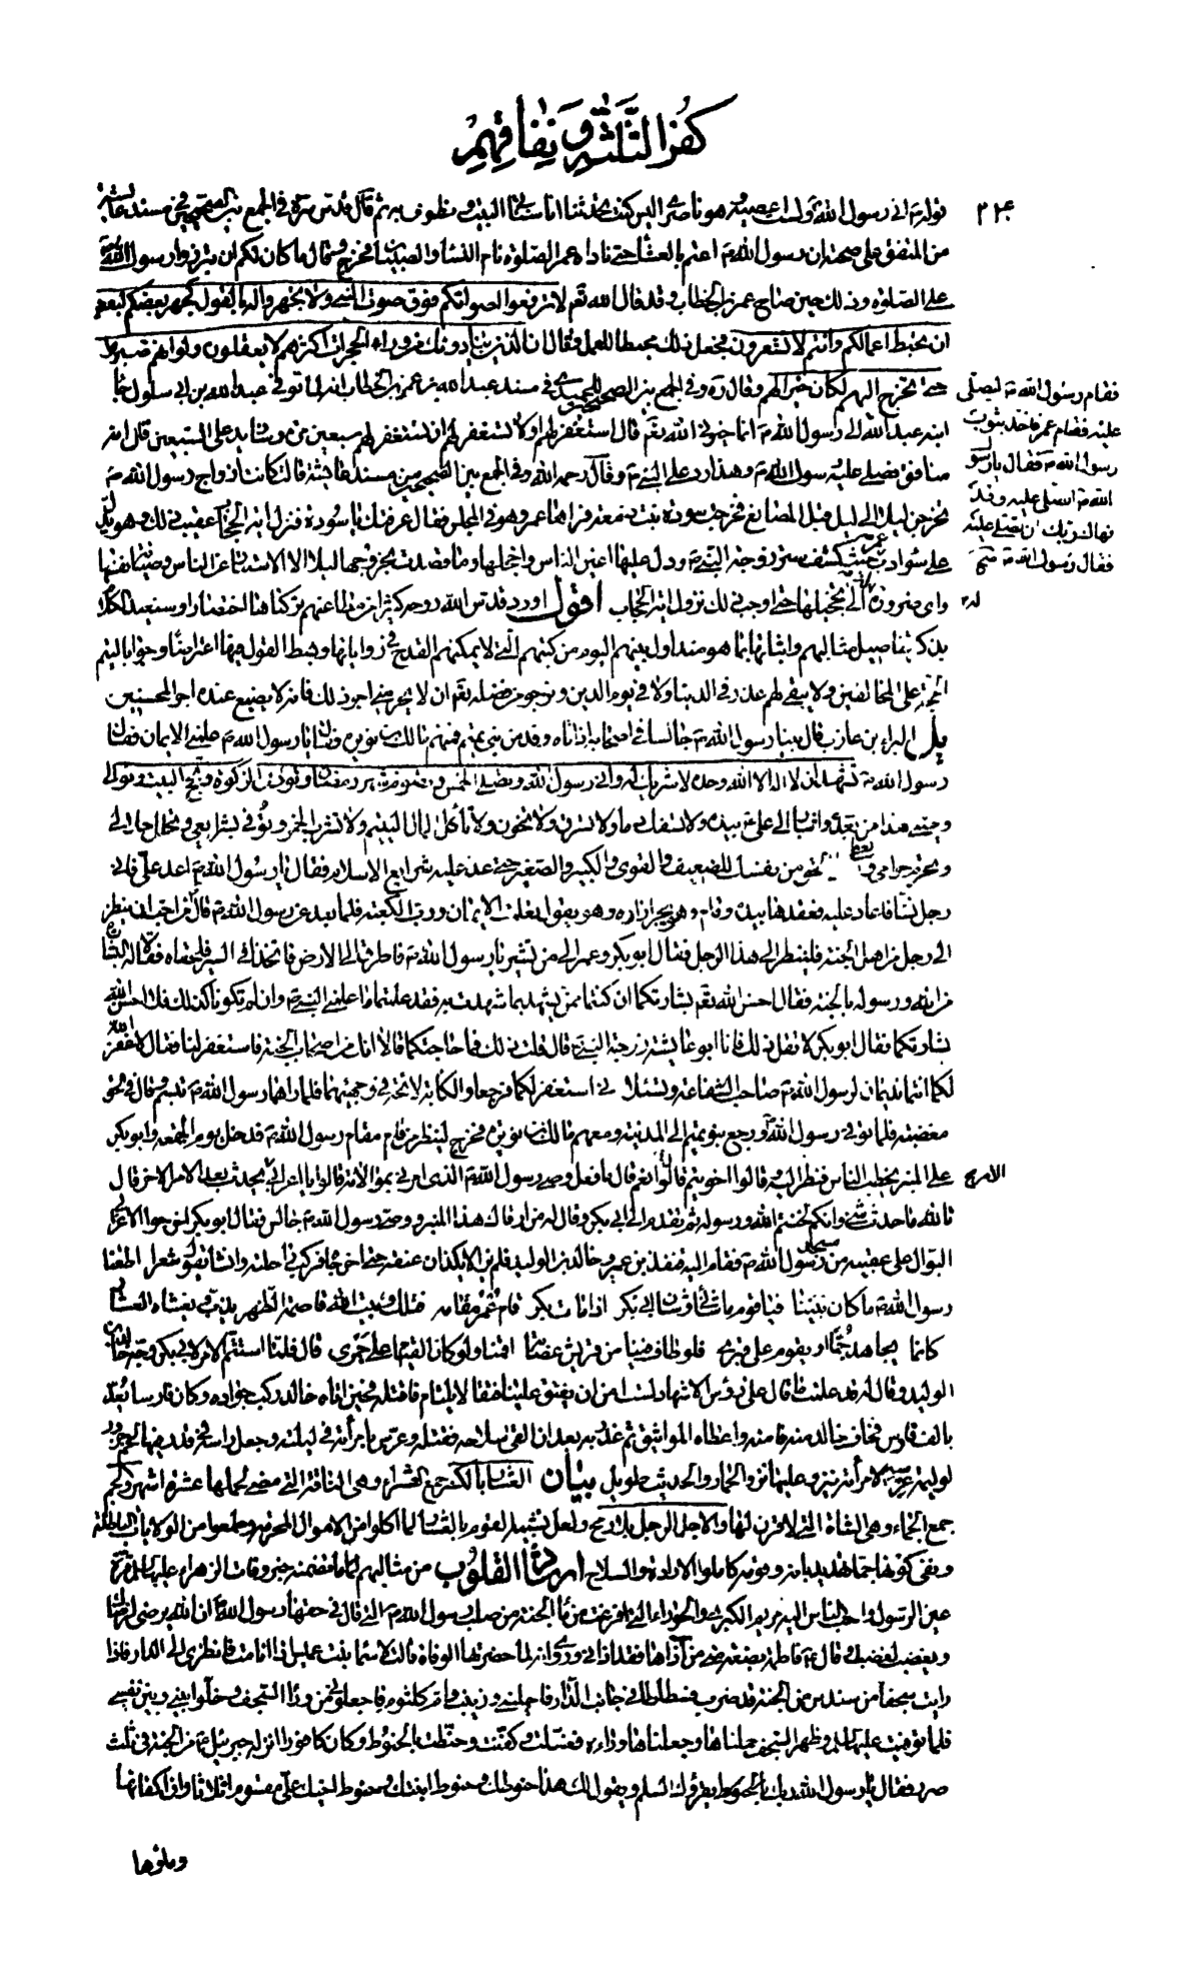 كفر الثلثة و نفاقهم
٢٢٤
قوله م اني رسول الله ولست اعصيه وهو ناصري اليس كنت تحدثنا انا سناتي البيت ونطوف به ثم قال قدس سره في الجمع بين الصحيحين في مسند عايشة
من المتفق على صحته ان رسول الله م اعتم بالعشا حتى ناداه عمر الصلوة نام النساء والصبيان فخرج وقال ما كان لكم ان تبرزوا رسول الله
على الصلوة وذلك حين صاح عمر بن الخطاب وقد قال الله تعم لا ترفعوا اصواتكم فوق صوت النبي ولا تجهروا له بالقول كجهر بعضكم لبعض
ان تحبط اعمالكم وانتم لا تشعرون فجعل ذلك محبطا للعمل وقال ان الذين ينادونك من وراء الحجرات اكثرهم لا يعقلون ولو انهم صبروا
حتى تخرج اليهم لكان خيرا لهم وقال ره وفي الجمع بين الصحيحين للحميدي في مسند عبد الله بن عمر بن الخطاب انه لما توفي عبد الله بن ابي سلول جا
ابنه عبد الله الى رسول الله م انما خيرني الله تعم قال استغفر لهم او لا تستغفر لهم ان تستغفر لهم سبعين مرة وسازيد على السبعين قال انه
منافق فصلى عليه رسول الله م وهذا رد على النبي م وقال رحمه الله وفي الجمع بين الصحيحين من مسند عايشة قالت كانت ازواج رسول الله م
يخرجن ليلا الى ليل قبل المصانع فخرجت سودة بنت زمعة فراها عمر وهو في المجلس فقال عرفتك يا سودة فنزل اية الحجاب عقيب ذلك وهو يدل
على سوء ادب عمر حيث كشف ستر زوجة النبي م ودل عليها اعين الناس واخجلها وما قصدت بخروجها ليلا الا الاستتار عن الناس وصيانة نفسها
واي ضرورة له الى تخجيلها حتى اوجب ذلك نزول اية الحجاب اقول اورد قدس الله روحه كثيرا من مطاعنهم تركناها اختصارا
فقام رسول الله م ليصلي
عليه فقام عمر فاخذ بثوب
رسول الله م فقال يا رسو
الله م اتصلي عليه وقد
نهاك ربك ان تصلي عليه
فقال رسول الله م
له
يذكر تفاصيل مثالبهم واثباتها بما هو متداول بينهم اليوم من كتبهم التي لا يمكنهم القدح في رواياتها وبسط القول فيها اعتراضا وجوابا ليتم
الحجة على المخالفين ولا يبقى لهم عذر في الدنيا ولا في يوم الدين ونرجو من فضله تعم ان لا يحرمني اجر ذلك فانه لا يضيع عنده اجر المحسنين
يل البراء بن عازب قال بينا رسول الله م جالسا في اصحابه اذ اتاه وفد من بني تميم منهم مالك بن نويرة فقال يا رسول الله م علمني الايمان فقال
رسول الله م تشهد ان لا اله الا الله وحده لا شريك له واني رسول الله وتصلي الخمس وتصوم شهر رمضان وتؤدي الزكوة وتحج البيت وتوالي
وصيي هذا من بعدي واشار الى علي م بيده ولا تسفك دما ولا تسرق ولا تخون ولا تأكل مال اليتيم ولا تشرب الخمر وتوفي بشرايعي وتحلل حلالي
وتحرم حرامي وتعطي الحق من نفسك للضعيف والقوي والكبير والصغير حتى عد عليه شرايع الاسلام فقال يا رسول الله م اعد علي فاني
رجل نساء فاعاد عليه فعقدها بيده وقام وهو يجر ازاره وهو يقول تعلمت الايمان ورب الكعبة فلما بعد عن رسول الله م قال من احب ان ينظر
الى رجل من اهل الجنة فلينظر الى هذا الرجل فقال ابو بكر وعمر الى من تشير يا رسول الله م فاطرق الى الارض فاتخذا في السير فلحقاه فقالا لك البشارة
من الله ورسوله بالجنة فقال احسن الله تعم بشارتكما ان كنتما ممن يشهد بما شهدت به فقد علمتما ما علمني النبي م وان لم تكونا كذلك فلا احسن الله
بشارتكما فقال ابو بكر لا تقل ذلك فانا ابو عايشة زوجة النبي م قال قلت ذلك فما حاجتكما قالا انك من اصحاب الجنة فاستغفر لنا فقال لا غفر الله
لكما انتما نديمان لرسول الله م صاحب الشفاعة وتسئلاني استغفر لكما فرجعا والكابة لائحة في وجهيهما فلما راهما رسول الله م تبسم وقال في الحق
مغضبة فلما توفي رسول الله ورجع بنو تميم الى المدينة ومعهم مالك بن نويرة فخرج لينظر من قام مقام رسول الله م فدخل يوم الجمعة وابو بكر
على المنبر يخطب الناس فنظر اليه وقالوا اخو تيم قالوا نعم قال ما فعل وصي رسول الله م الذي امرني بموالاته قالوا يا اعرابي يحدث بعد الامر الاخر قال
الامر
تالله ما حدث شي وانكم لخنتم الله ورسوله ثم تقدم الى ابي بكر وقال له من ارقاك هذا المنبر ووصي رسول الله م جالس فقال ابو بكر اخرجوا الاعرابي
البوال على عقبيه من مسجد رسول الله م فقام اليه قنفذ بن عمير وخالد بن الوليد فلم يزالا يلكذان عنقه حتى اخرجاه فركب راحلته وانشا يقول شعرا اطعنا
رسول الله م ما كان بيننا فيا قوم ما شاني وشان ابي بكر اذا مات بكر قام عمرو مقامه فتلك وبيت الله قاصمة الظهر يذب ويغشاه العشار
كانما يجاهد جما او يقوم على قبر فلو طاف فينا من قريش عصابة اقمنا ولو كان القيام على جمر قال فلما استتم الامر لابي بكر وجه خالد بن
الوليد وقال له قد علمت ما قال على رؤس الاشهاد لست امن ان يفتق علينا فتقا لا يلتئم فاقتله فحين اتاه خالد ركب جواده وكان فارسا يعد
بالف فارس فخاف خالد منه فامنه واعطاه المواثيق ثم غدر به بعد ان القى سلاحه فقتله وعرس بامرأته في ليلته وجعل راسه في قدر فيها لحم جزور
لوليمة عرسه لامرأته ينزو عليها نزو الحمار والحديث طويل بيان العشار بالكسر جمع العشراء وهي الناقة التي مضى لحملها عشرة اشهر والجم
جمع الجماء وهي الشاة التي لا قرن لها والاجم الرجل بلا رمح ولعل تشبيه القوم بالعشار لما اكلوا من الاموال المحرمة وجمعوا من الولايات الباطلة
وفي كونها جما تهديد بانه وقومه كاملوا الارادة والسلاح ارشاد القلوب من مثالبهم لما تضمنه خبر وفات الزهراء عليها السلام قرة
عين الرسول واحب الناس اليه مريم الكبرى والحوراء التي افرغت من ماء الجنة من صلب رسول الله م التي قال في حقها رسول الله م ان الله يرضى لرضاك
ويغضب لغضبك وقال م فاطمة بضعة مني من آذاها فقد آذاني وروي انه لما حضرتها الوفاة قالت لاسماء بنت عميس اذا انا مت فانظري الى الدار فاذا
رايت سجفا من سندس من الجنة قد ضرب فسطاطا في جانب الدار فاحمليني وزينب وام كلثوم فاجعلوني من وراء السجف وخلوا بيني وبين نفسي
فلما توفيت عليها السلام وظهر السجف حملناها وجعلناها وراءه فغسلت وكفنت وحنطت بالحنوط وكان كافورا انزله جبرئيل م من الجنة في ثلث
صرر فقال يا رسول الله ربك يقرؤك السلم ويقول لك هذا حنوطك وحنوط ابنتك وحنوط اخيك علي مقسوم اثلاثا وان اكفانها
وماؤها